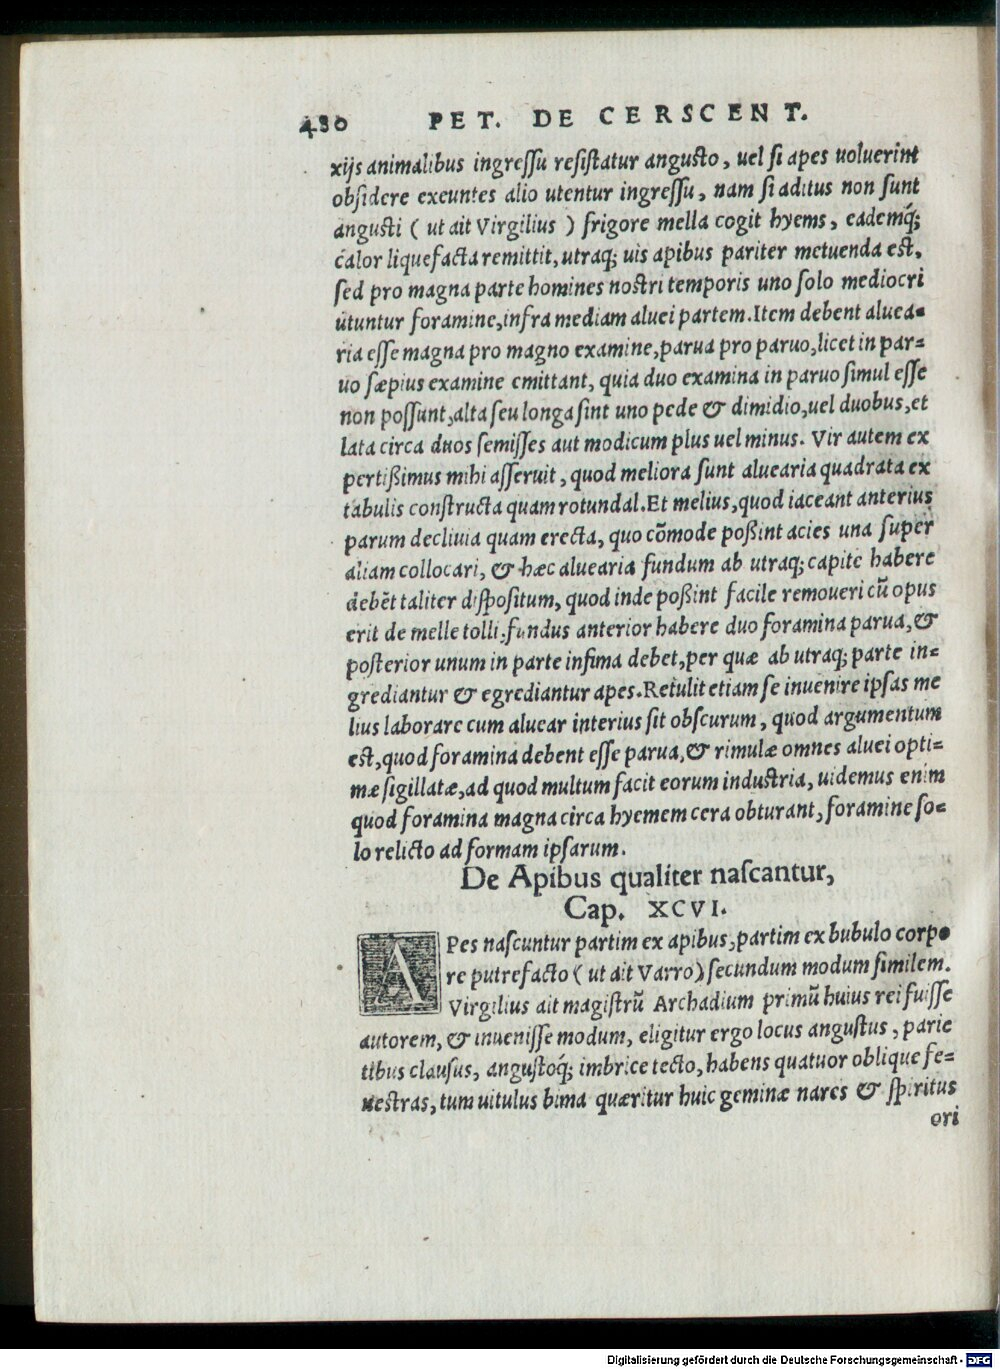 480 PET. DE CERSCENT.
xijs animalibus ingreſſu reſiſtatur anguſto, uel ſi apes uoluerint
obſidere exeuntes alio utentur ingreſſu, nam ſi aditus non ſunt
anguſti ( ut ait Virgilius ) frigore mella cogit hyems, eademq́;
calor liquefacta remittit, utraq; uis apibus pariter metuenda eſt,
ſed pro magna parte homines noſtri temporis uno ſolo mediocri
utuntur foramine, infra mediam aluei partem. Item debent aluea-
ria eſſe magna pro magno examine, parua pro paruo, licet in par=
uo ſæpius examine emittant, quia duo examina in paruo ſimul eſſe
non poſſunt, alta ſeu longa ſint uno pede & dimidio, uel duobus, et
lata circa duos ſemiſſes aut modicum plus uel minus. Vir autem ex
pertißimus mihi aſſeruit, quod meliora ſunt aluearia quadrata ex
tabulis conſtructa quam rotundal. Et melius, quod iaceant anterius
parum decliuia quam erecta, quo cōmode poßint acies una ſuper
aliam collocari, & hæc aluearia fundum ab utraq; capite habere
debēt taliter diſpoſitum, quod inde poßint facile remoueri cū opus
erit de melle tolli. fundus anterior habere duo foramina parua, &
poſterior unum in parte infima debet, per quæ ab utraq; parte in=
grediantur & egrediantur apes. Retulit etiam ſe inuenire ipſas me
lius laborare cum aluear interius ſit obſcurum, quod argumentum
eſt, quod foramina debent eſſe parua, & rimulæ omnes aluei opti=
mæ ſigillatæ, ad quod multum facit eorum induſtria, uidemus enim
quod foramina magna circa hyemem cera obturant, foramine ſo=
lo relicto ad formam ipſarum.
De Apibus qualiter naſcantur,
Cap. XCVI.
APes naſcuntur partim ex apibus, partim ex bubulo corpo
re putrefacto ( ut ait Varro) ſecundum modum ſimilem.
Virgilius ait magiſtrū Archadium primū huius rei fuiſſe
autorem, & inueniſſe modum, eligitur ergo locus anguſtus, parie
tibus clauſus, anguſtoq́; imbrice tecto, habens quatuor oblique fe=
neſtras, tum uitulus bima quæritur huic geminæ nares & ſpiritus
ori
Digitalisierung gefördert durch die Deutsche Forschungsgemeinschaft - DFG